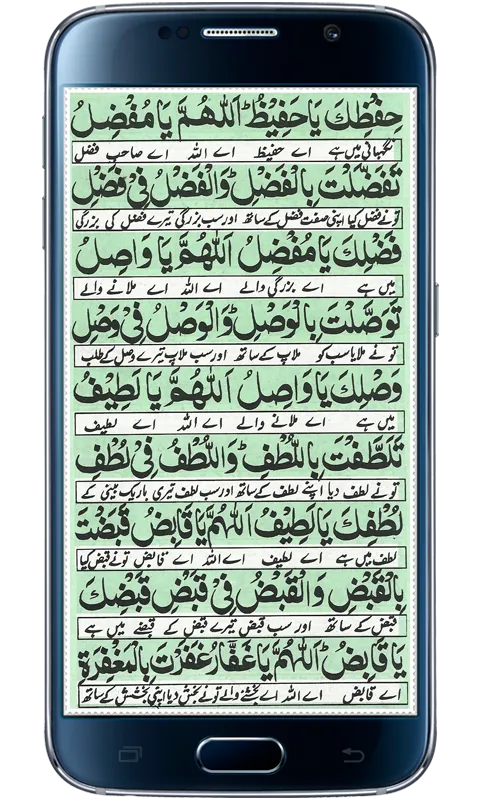 حِفْظِكَ يَا حَفِيْظُ اَللّٰهُمَّ يَا مُفْضِلُ
نگہبانی میں ہے اے حفیظ اے اللہ اے صاحب فضل
تَفَضَّلْتَ بِالْفَضْلِ وَالْفَضْلُ فِيْ فَضْلِ
تونے فضل کیا اپنی صفت فضل کے ساتھ اور سب بزرگی تیرے فضل کی بزرگی
فَضْلِكَ يَا مُفْضِلُ اَللّٰهُمَّ يَا وَاصِلُ
میں ہے اے بزرگی والے اے اللہ اے ملانے والے
تَوَصَّلْتَ بِالْوَصْلِ وَالْوَصْلُ فِيْ وَصْلِ
تو نے ملایا سب کو ملاپ کے ساتھ اور سب ملاپ تیرے وصل کے طلب
وَصْلِكَ يَا وَاصِلُ اَللّٰهُمَّ يَا لَطِيْفُ
میں ہے اے ملانے والے اے اللہ اے لطیف
تَلَطَّفْتَ بِاللُّطْفِ وَاللُّطْفُ فِيْ لُطْفِ
تو نے لطف دیا اپنے لطف کے ساتھ اور سب لطف تیری باریک بینی کے
لُطْفِكَ يَا لَطِيْفُ اَللّٰهُمَّ يَا قَابِضُ قَبَضْتَ
لطف میں ہے اے لطیف اے اللہ اے قابض تونے قبض کیا
بِالْقَبْضِ وَالْقَبْضُ فِيْ قَبْضِ قَبْضِكَ
قبض کے ساتھ اور سب قبض تیرے قبض کے قبضے میں ہے
يَا قَابِضُ اَللّٰهُمَّ يَا غَفَّارُ غَفَرْتَ بِالْمَغْفِرَةِ
اے قابض اے اللہ اے بخشنے والے تونے بخش دیا اپنی بخشش کے ساتھ